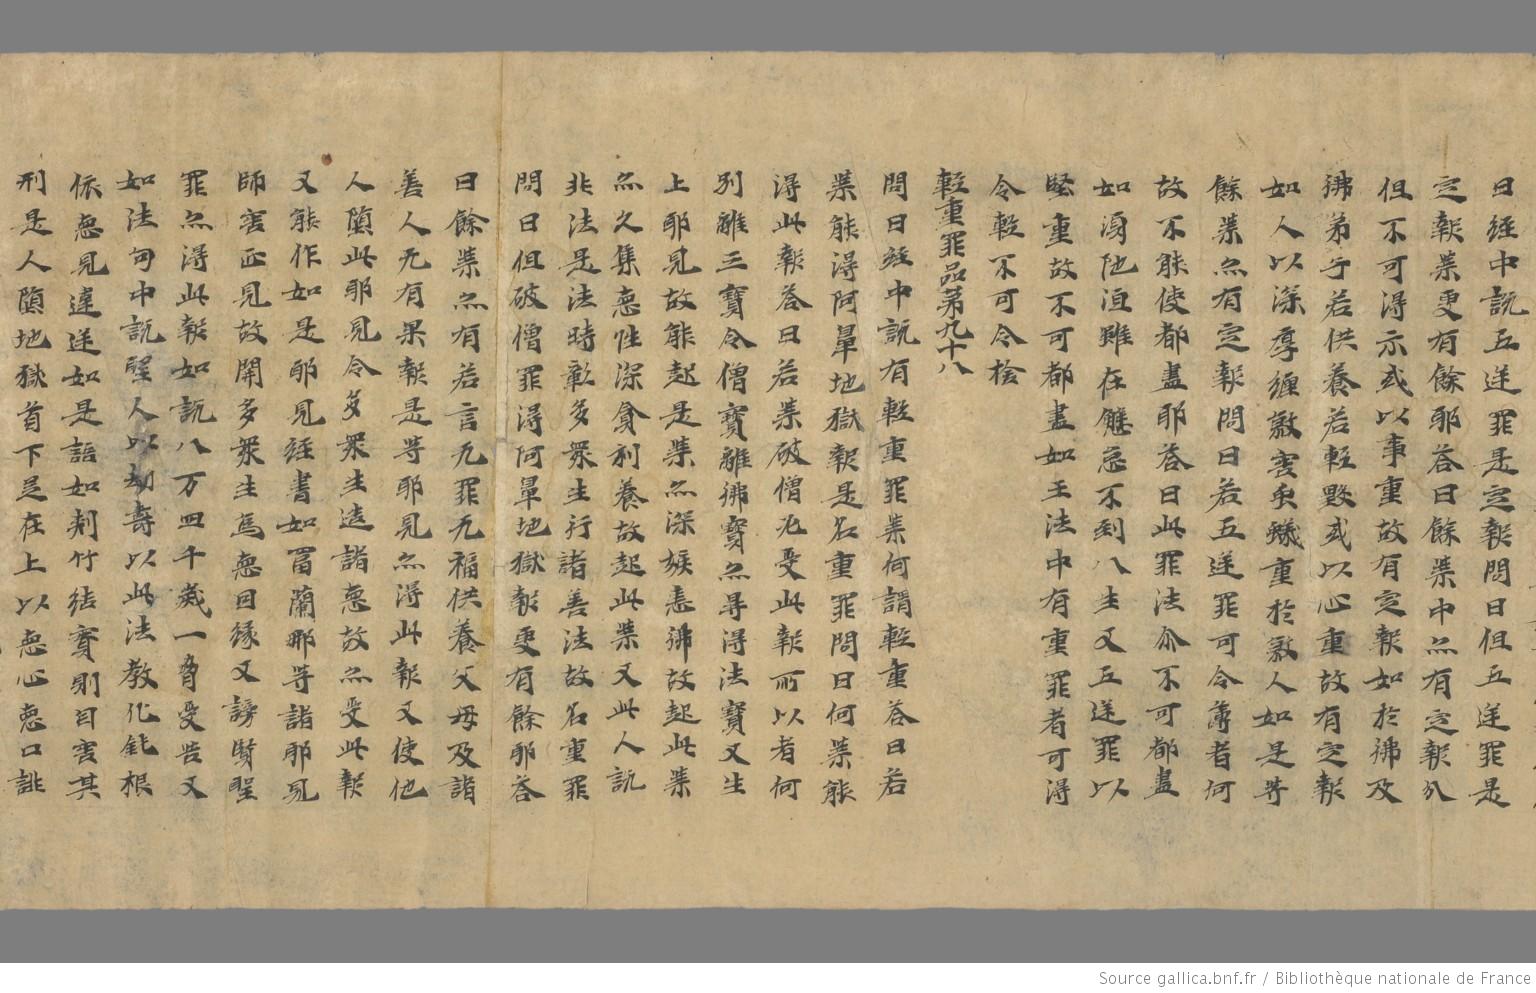 曰經中說五逆罪是定報問曰但五逆罪是
定報業更有餘耶答曰餘業中亦有定報分
但不可得示或以事重故有定報如於佛及
佛弟子若供養若輕毀或以心重故有定報
如人以深厚纏煞害虫蟻重於煞人如是等
餘業亦有定報問曰若五逆罪可令薄者何
故不能使都盡耶答曰此罪法尒不可都盡
如湏陁洹雖在懈怠不到八生又五逆罪以
堅重故不可都盡如王法中有重罪者可得
令輕不可令捨
輕重罪品第九十八
問曰經中說有輕重罪業何謂輕重答曰若
業能得阿鼻地獄報是名重罪問曰何業能
得此報答曰若業破僧必受此報所以者何
別離三寶令僧寶離佛寶亦㝵得法寶又生
上耶見故能起是業亦深嫉恚佛故起此業
亦久集惡性深貪利養故起此業又此人說
非法是法時彰多衆生行諸善法故名重罪
問曰但破僧罪得阿鼻地獄報更有餘耶答
曰餘業亦有若言无罪无福供養父母及諸
善人无有果報是等耶見亦得此報又使他
人墮此耶見令多衆生造諸惡故亦受此報
又能作如是耶見經書如冨蘭那等諸耶見
師害正見故開多衆生爲惡因緣又謗賢聖
罪亦得此報如說八万四千歲一脅受苦又
如法句中說聖人以劫壽以此法教化鈍根
依惡見違逆如是語如刺竹結實則自害其
形是人墮地獄首下足在上以惡心惡口誹